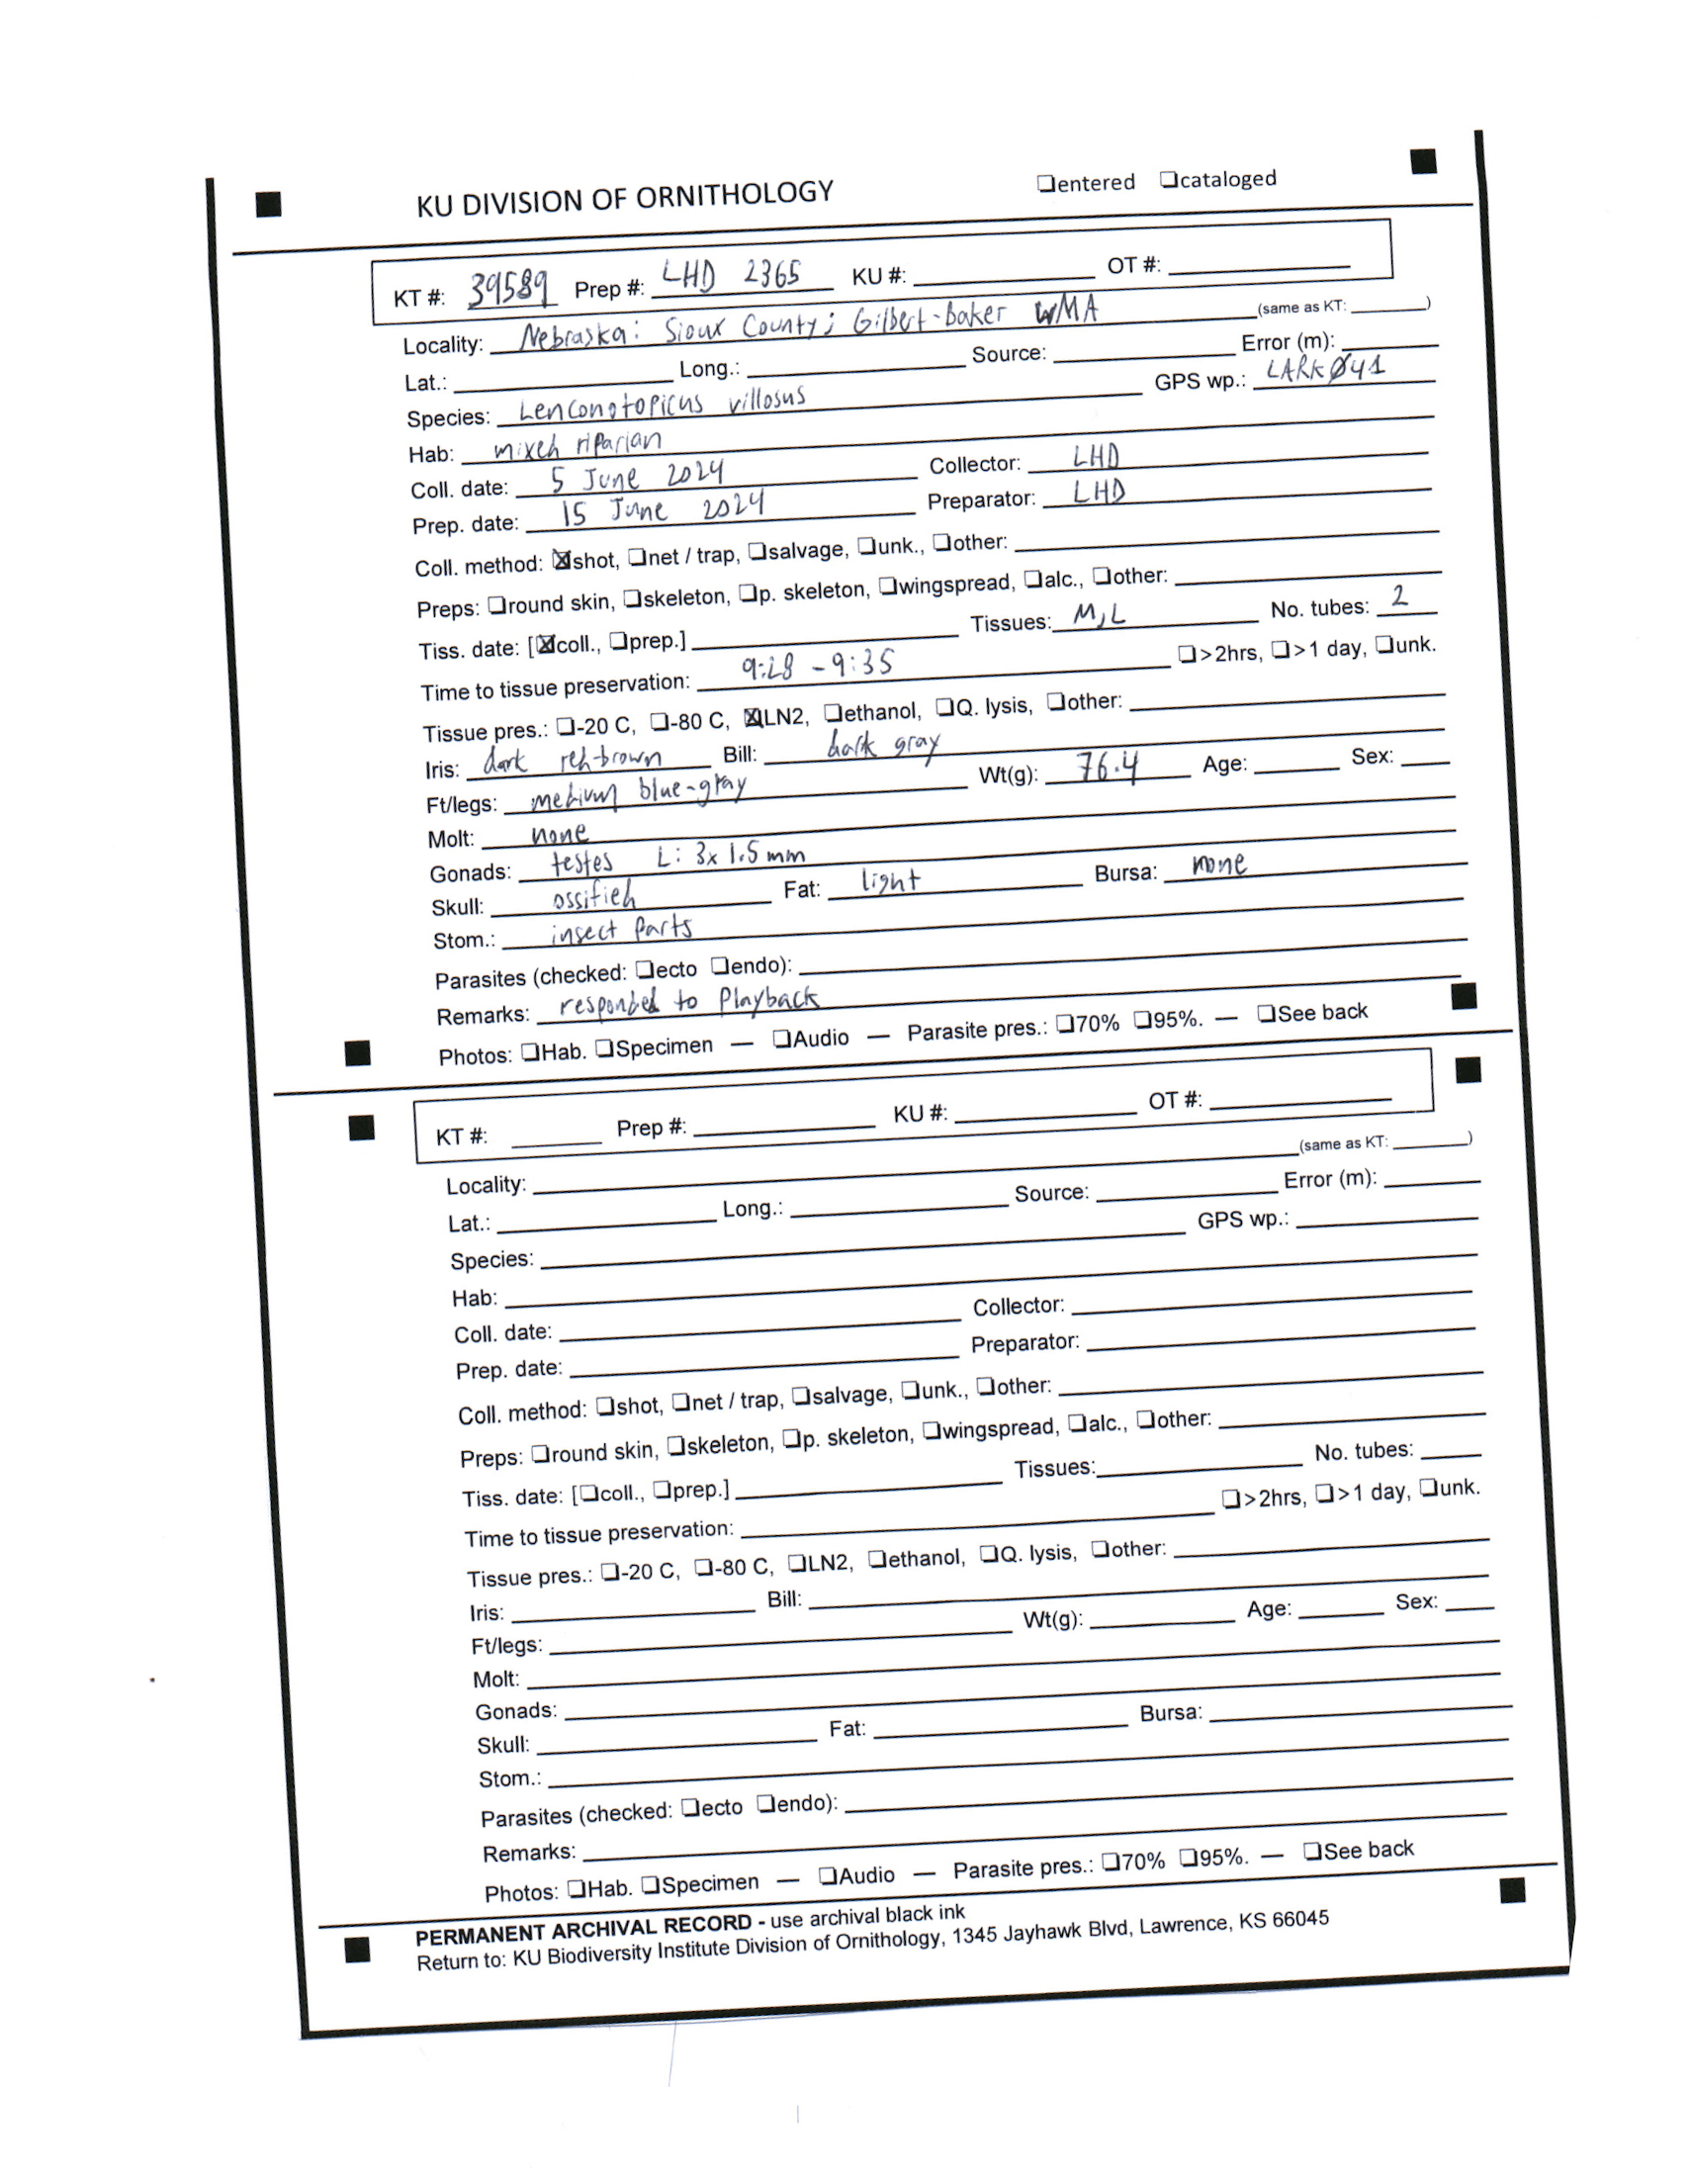 KU DIVISION OF ORNITHOLOGY ❑entered ❑cataloged
KT #: 39589 Prep #: LHD 2365 KU #: OT #:
Locality: Nebraska: Sioux County; Gilbert-baker WMA (same as KT: )
Lat.: Long.: Source: Error (m):
Species: Lenconotopicus villosus GPS wp.: LARKØ41
Hab: mixed riparian
Coll. date: 5 June 2024 Collector: LHD
Prep. date: 15 June 2024 Preparator: LHD
Coll. method: ☒shot, ❑net / trap, ❑salvage, ❑unk., ❑other:
Preps: ❑round skin, ❑skeleton, ❑p. skeleton, ❑wingspread, ❑alc., ❑other:
Tiss. date: [☒coll., ❑prep.] Tissues: M,L No. tubes: 2
Time to tissue preservation: 9:28 - 9:35 ❑>2hrs, ❑>1 day, ❑unk.
Tissue pres.: ❑-20 C, ❑-80 C, ☒LN2, ❑ethanol, ❑Q. lysis, ❑other:
Iris: dark red-brown Bill: dark gray
Ft/legs: medium blue-gray Wt(g): 76.4 Age: Sex:
Molt: none
Gonads: testes L: 3x1.5mm
Skull: ossified Fat: light Bursa: none
Stom.: insect parts
Parasites (checked: ❑ecto ❑endo):
Remarks: responded to Playback
Photos: ❑Hab. ❑Specimen — ❑Audio — Parasite pres.: ❑70% ❑95%. — ❑See back
KT #: Prep #: KU #: OT #:
Locality: (same as KT: )
Lat.: Long.: Source: Error (m):
Species: GPS wp.:
Hab:
Coll. date: Collector:
Prep. date: Preparator:
Coll. method: ❑shot, ❑net / trap, ❑salvage, ❑unk., ❑other:
Preps: ❑round skin, ❑skeleton, ❑p. skeleton, ❑wingspread, ❑alc., ❑other:
Tiss. date: [❑coll., ❑prep.] Tissues: No. tubes:
Time to tissue preservation: ❑>2hrs, ❑>1 day, ❑unk.
Tissue pres.: ❑-20 C, ❑-80 C, ❑LN2, ❑ethanol, ❑Q. lysis, ❑other:
Iris: Bill:
Ft/legs: Wt(g): Age: Sex:
Molt:
Gonads:
Skull: Fat: Bursa:
Stom.:
Parasites (checked: ❑ecto ❑endo):
Remarks:
Photos: ❑Hab. ❑Specimen — ❑Audio — Parasite pres.: ❑70% ❑95%. — ❑See back
PERMANENT ARCHIVAL RECORD - use archival black ink
Return to: KU Biodiversity Institute Division of Ornithology, 1345 Jayhawk Blvd, Lawrence, KS 66045